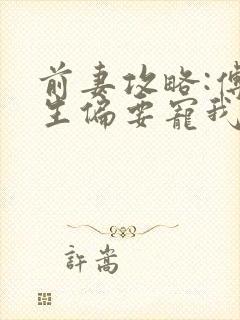 前妻攻略:傅
生偏要寵我
許嵩